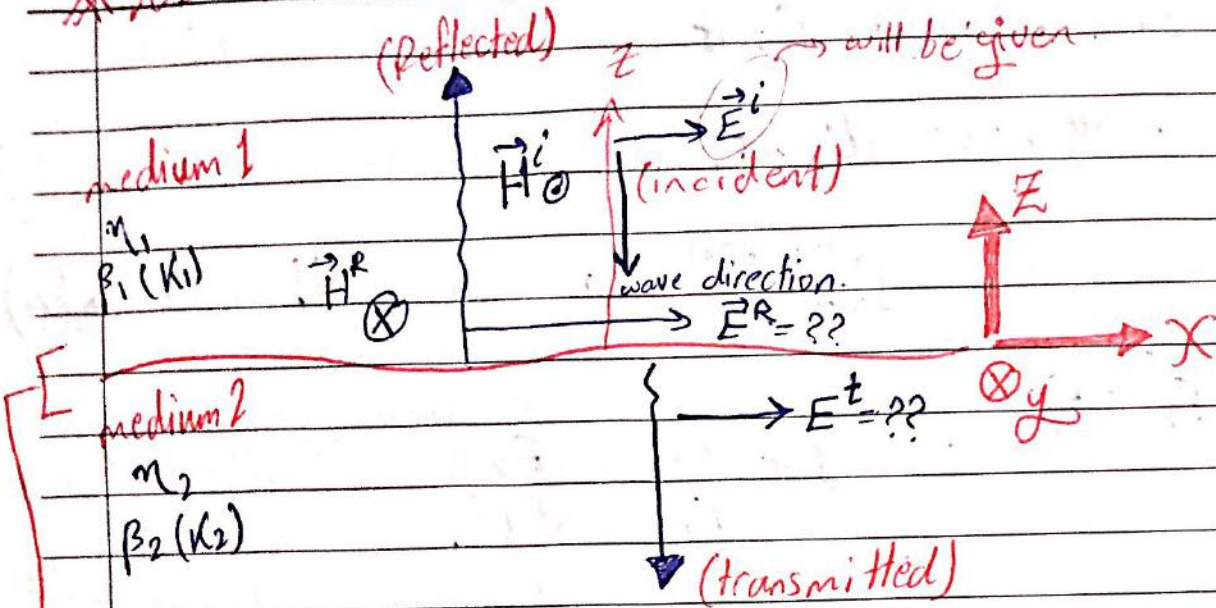 (Reflected)
Z
→ will be given.
E⃗ⁱ
medium 1
H⃗ⁱ ⊙
(incident)
Z
η₁
β₁ (K₁)
H⃗ᴿ ⊗
wave direction.
E⃗ᴿ = ??
X
⊗ y
medium 2
Eᵗ = ??
η₂
β₂ (K₂)
(transmitted)